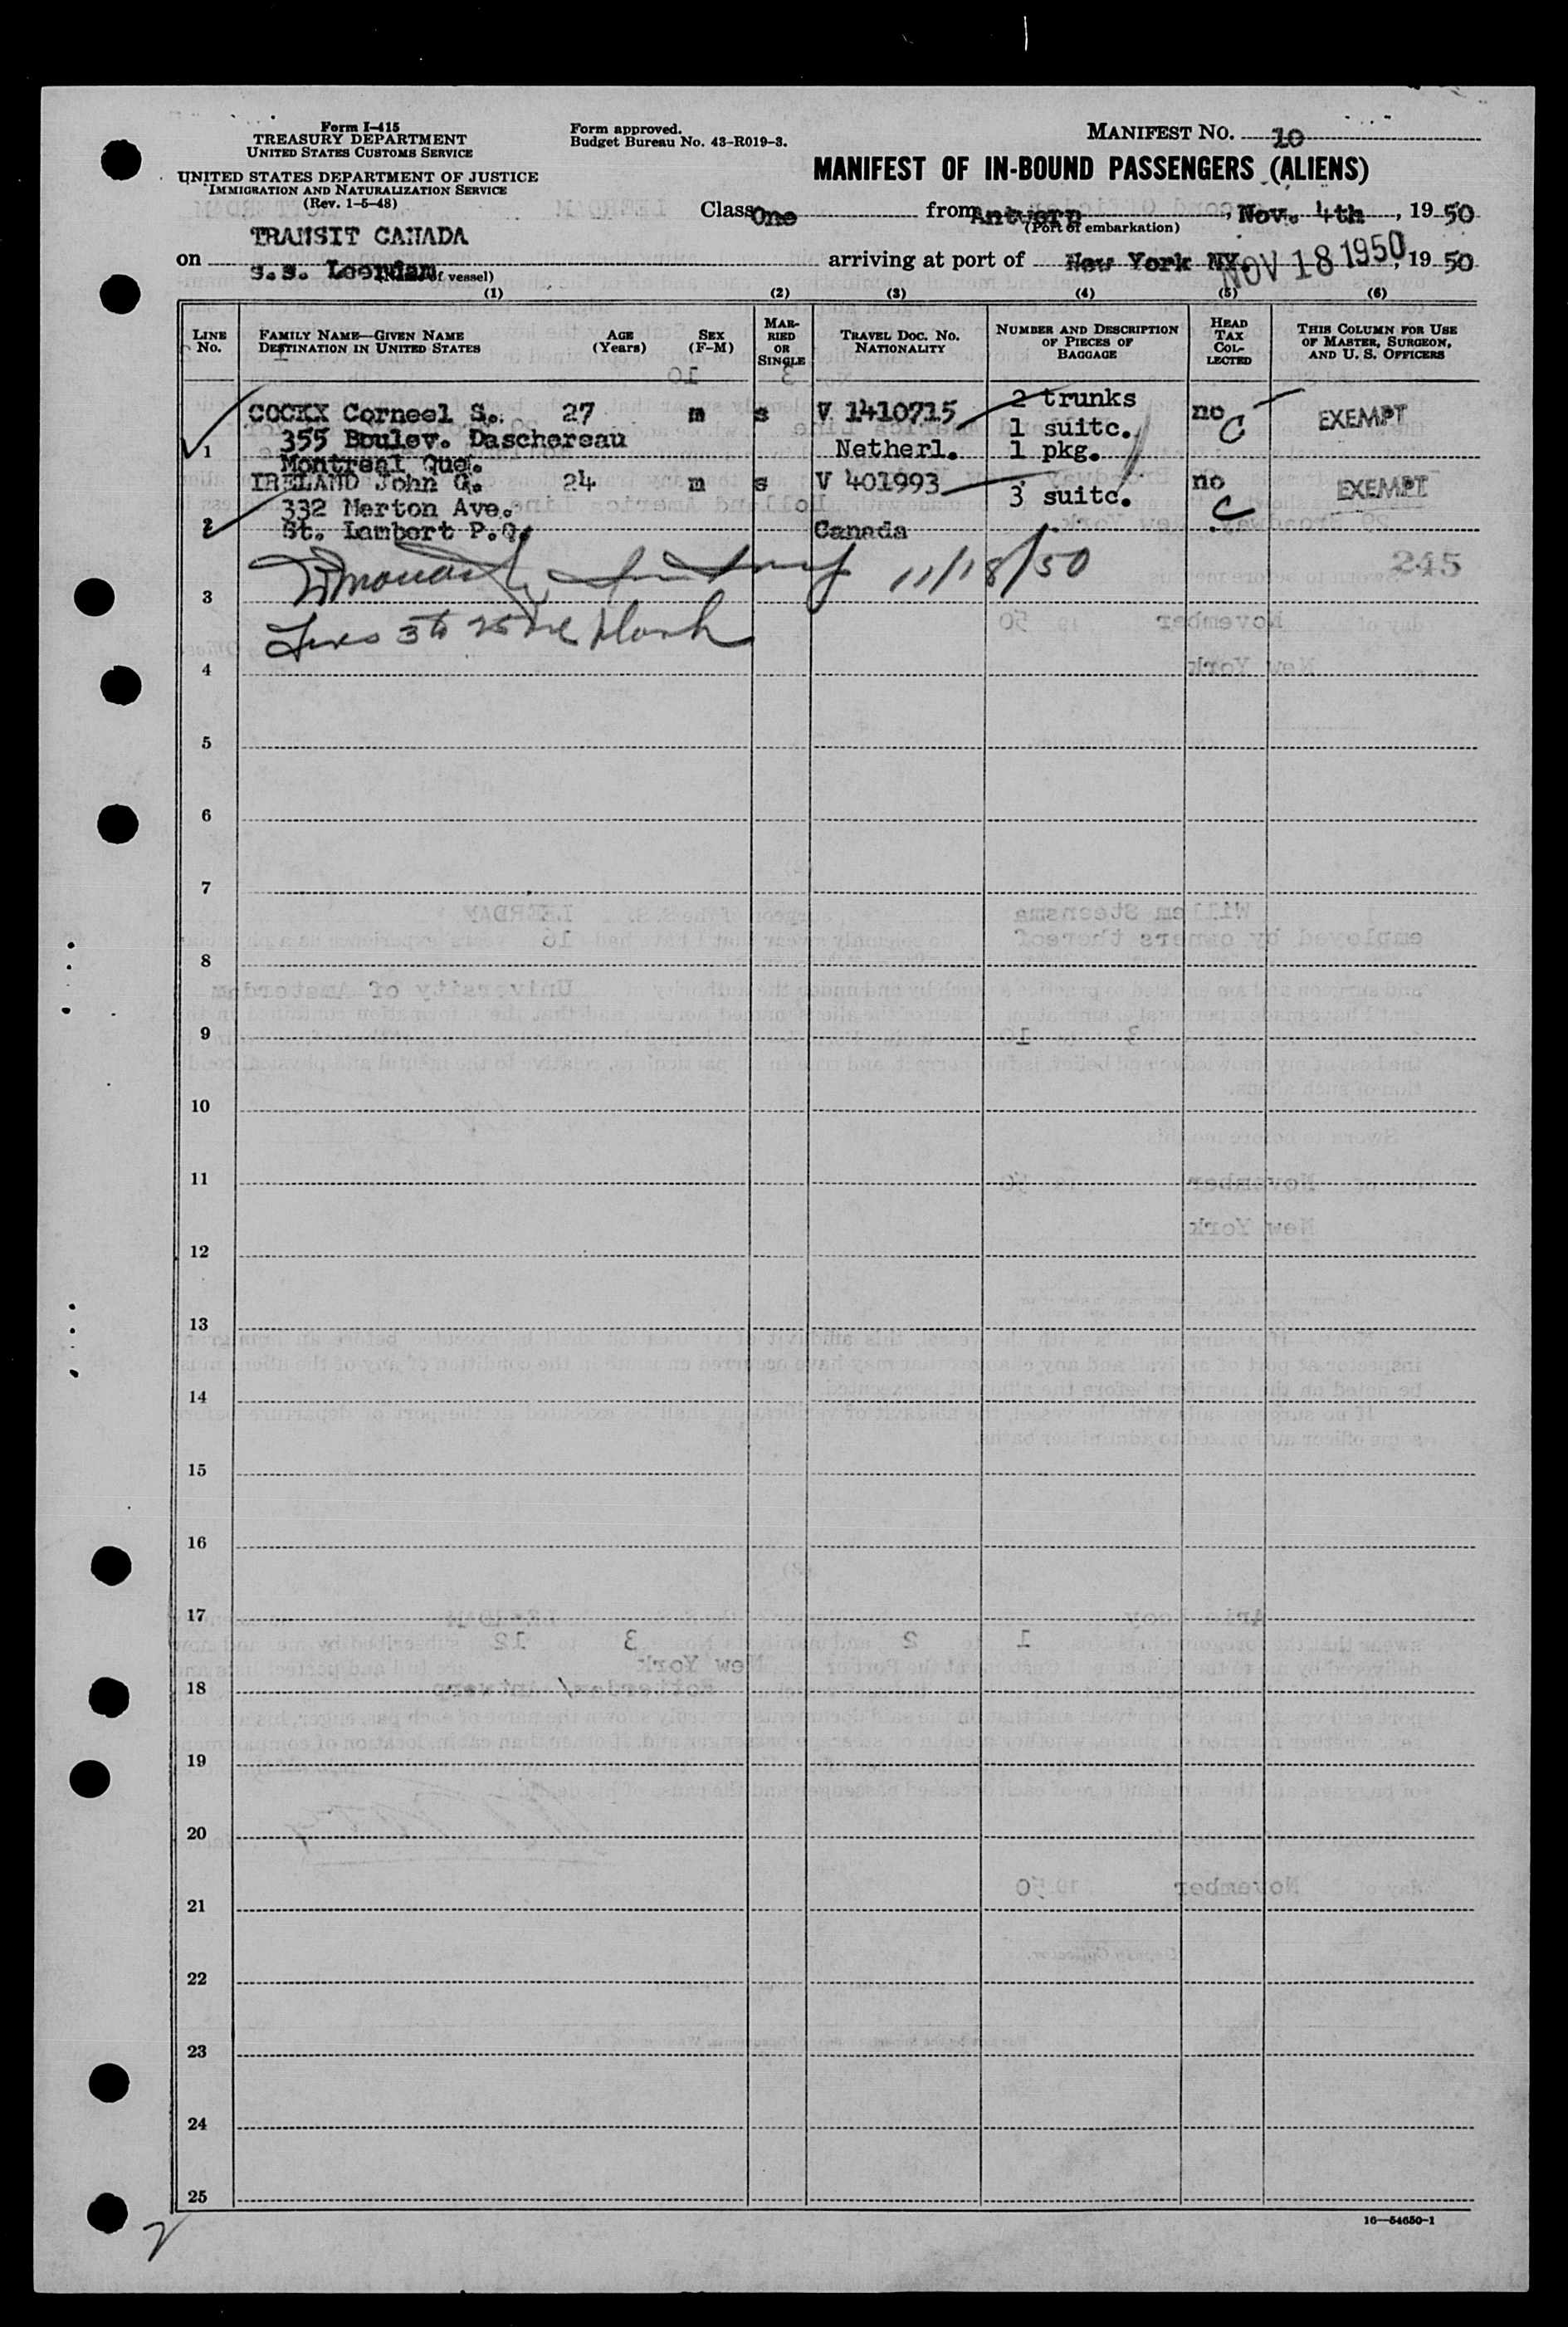 Form I-415
TREASURY DEPARTMENT
UNITED STATES CUSTOMS SERVICE
UNITED STATES DEPARTMENT OF JUSTICE
IMMIGRATION AND NATURALIZATION SERVICE
(Rev. 1-5-48)
Form approved.
Budget Bureau No. 43-R019-3.
MANIFEST NO. 10
MANIFEST OF IN-BOUND PASSENGERS (ALIENS)
Class One from Antwerp, Nov. 4th, 19 50
(Port of embarkation)
TRANSIT CANADA
on s.s. Leerdam arriving at port of New York NY. NOV 18 1950, 19 50
(Name of vessel)
(1) (2) (3) (4) (5) (6)
LINE No. FAMILY NAME—GIVEN NAME DESTINATION IN UNITED STATES AGE (Years) SEX (F-M) MARRIED OR SINGLE TRAVEL DOC. NO. NATIONALITY NUMBER AND DESCRIPTION OF PIECES OF BAGGAGE HEAD TAX COLLECTED THIS COLUMN FOR USE OF MASTER, SURGEON, AND U. S. OFFICERS
COCKX Corneel S. 27 m s V 1410715 2 trunks no C EXEMPT
355 Boulev. Daschereau 1 suitc.
1 Montreal Que. Netherl. 1 pkg.
IRELAND John G. 24 m s V 401993 3 suitc. no C EXEMPT
332 Merton Ave.
2 St. Lambert P.Q. Canada
11/18/50
245
3
4
5
6
7
8
9
10
11
12
13
14
15
16
17
18
19
20
21
22
23
24
25
16—54650-1
2